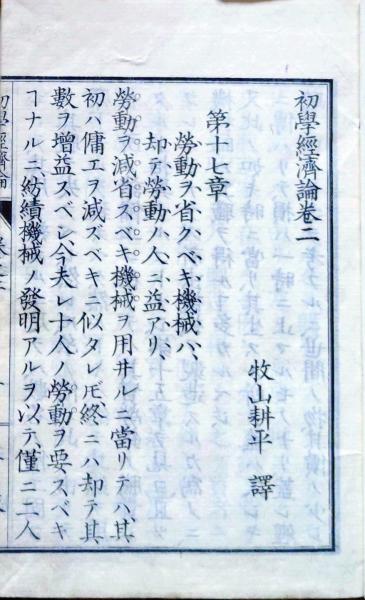 初學經濟論卷二
牧山耕平 譯
第十七章
勞動ヲ省クベキ機械ハ、
却テ勞動ノ人ニ益アリ、
勞動ヲ減省スベキ機械ヲ用井ルニ當リテハ、其
初ハ傭工ヲ減ズベキニ似タレ𪜈、終ニハ却テ其
數ヲ增益スベシ、今夫レ十人ノ勞動ヲ要スベキ
ヿナルニ紡績機械ノ發明アルヲ以テ、僅ニ二人
初學經濟論